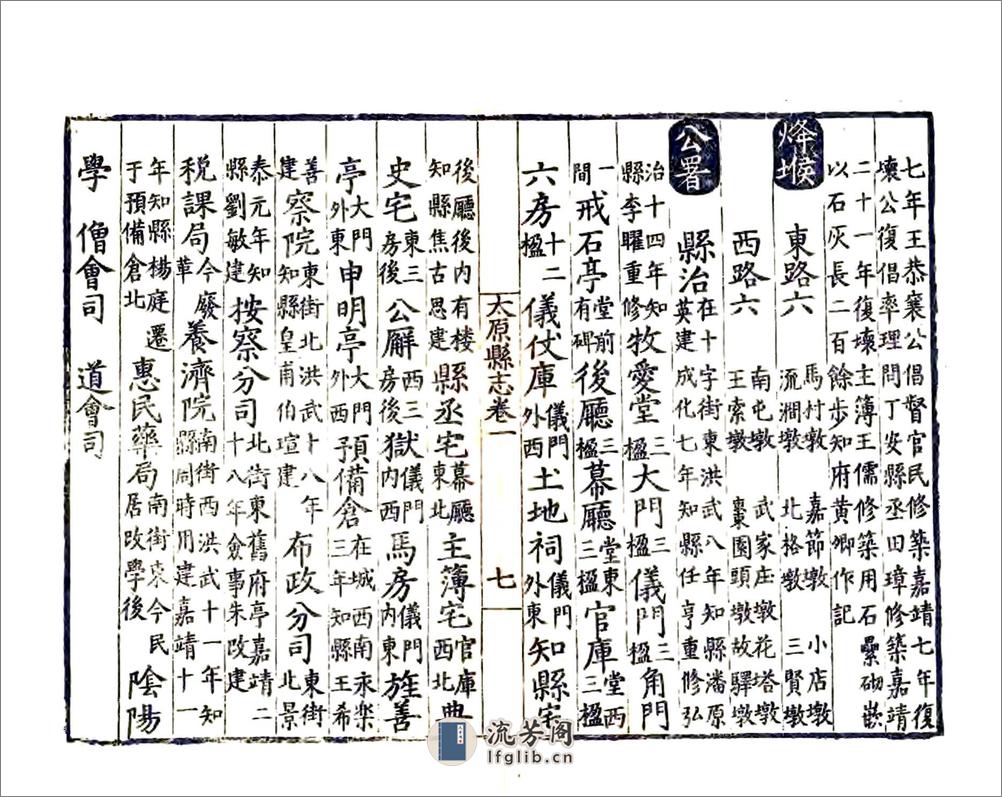 七年王恭襄公倡督官民修築嘉靖七年復
壞公復倡率理問丁安縣丞田璋修築嘉靖
二十一年復壞主簿王儒修築用石壘砌嵌
以石灰長二百餘步知府黃卿作記
烽堠
東路六
馬村墩 嘉節墩 小店墩
流澗墩 北格墩 三賢墩
西路六
南屯墩 武家庄墩 花塔墩
王索墩 棗園頭墩 故驛墩
公署
縣治
在十字街東洪武八年知縣潘原
英建成化七年知縣任亨重修弘
治十四年知
縣李曜重修
牧愛堂三楹
大門三楹
儀門三楹
角門
一間
戒石亭
堂前有碑
後廳三楹
幕廳堂東三楹
官庫堂西三楹
六房十二楹
儀仗庫儀門外西
土地祠儀門外東
知縣宅
後廳後內有楼
知縣焦古思建
縣丞宅幕廳東北
主簿宅官庫西北
典
史宅東三房後
公廨西三房後
獄儀門內西
馬房儀門內東
旌善
亭大門外東
申明亭大門外西
預備倉
在城西南永樂
三年知縣王希
善建
察院
東街北洪武十八年
知縣皇甫伯瑄建
布政分司
東街北景
泰元年知
縣劉敏建
按察分司
北街東舊府亭嘉靖二
十八年僉事朱政建
稅課局今廢革
養濟院
南街西洪武十一年知
縣同時用建嘉靖十一
年知縣楊庭遷
于預備倉北
惠民藥局
南街東今民
居改學後
陰陽
學 僧會司 道會司
太原縣志卷一
七
流芳阁
lfglib.cn